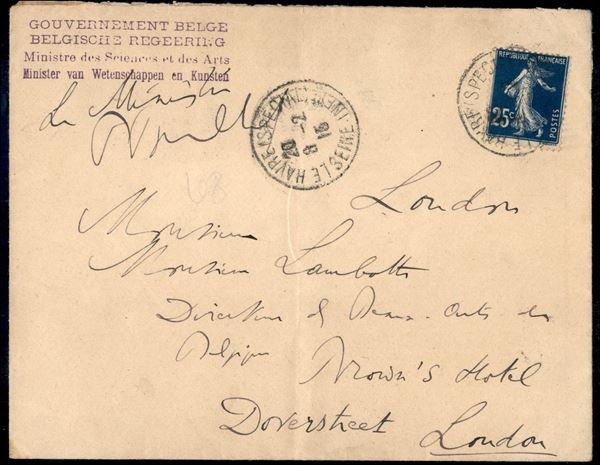 GOUVERNEMENT BELGE
BELGISCHE REGEERING
Ministre des Sciences et des Arts
Minister van Wetenschappen en Kunsten
Le Ministre
LE HAVRE (SPECIAL) SEINE-INFRE
20
8
16
REPUBLIQUE FRANÇAISE
25c
POSTES
London
Monsieur
Monsieur Lambotte
Directeur des Beaux-Arts de
Belgique
Brown's Hotel
Doverstreet
London